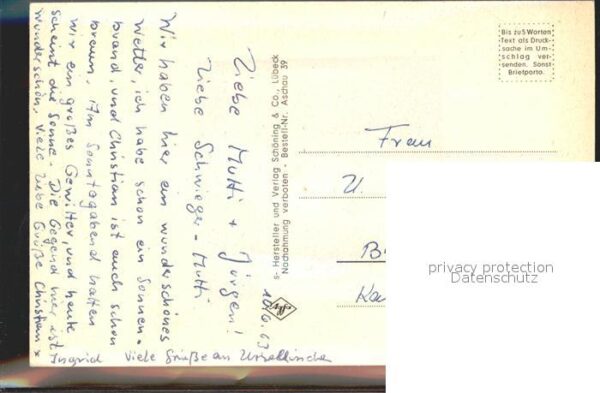 Liebe Mutti + Jürgen!
Liebe Schwieger-Mutti
Wir haben hier ein wunderschönes
Wetter, ich habe schon ein Sonnen-
brand, und Christian ist auch schon
braun. Am Sonntagabend hatten
wir ein großes Gewitter, und heute
scheint die Sonne. Die Gegend hier ist
wunderschön, Viele liebe Grüße Christian +
Ingrid Viele Grüße an
10.6.63
s- Hersteller und Verlag Schöning & Co., Lübeck
Nachahmung verboten - Bestell-Nr. Aschau 39
Agfa
Bis zu 5 Worten
Text als Druck-
sache im Um-
schlag ver-
senden. Sonst
Briefporto.
Frau
U.
B
Ka
privacy protection
Datenschutz